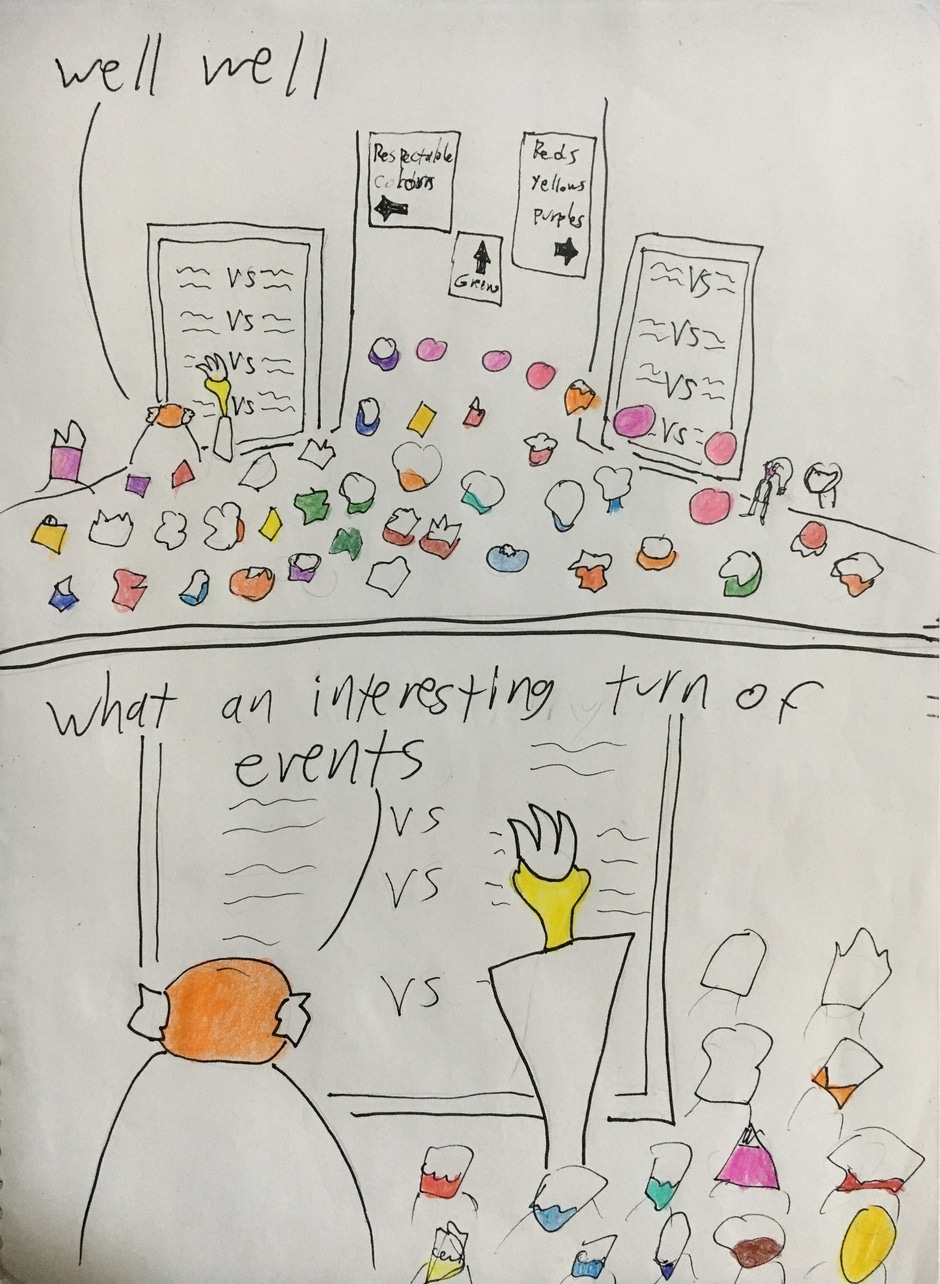 well well
Respectable
Reds
Yellows
Purples
Greens
VS
VS
VS
VS
VS
VS
VS
VS
what an interesting turn of
events
VS
VS
VS